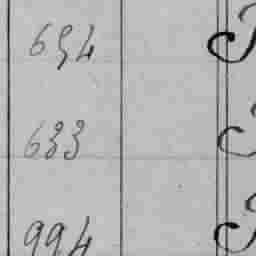 654
633
994